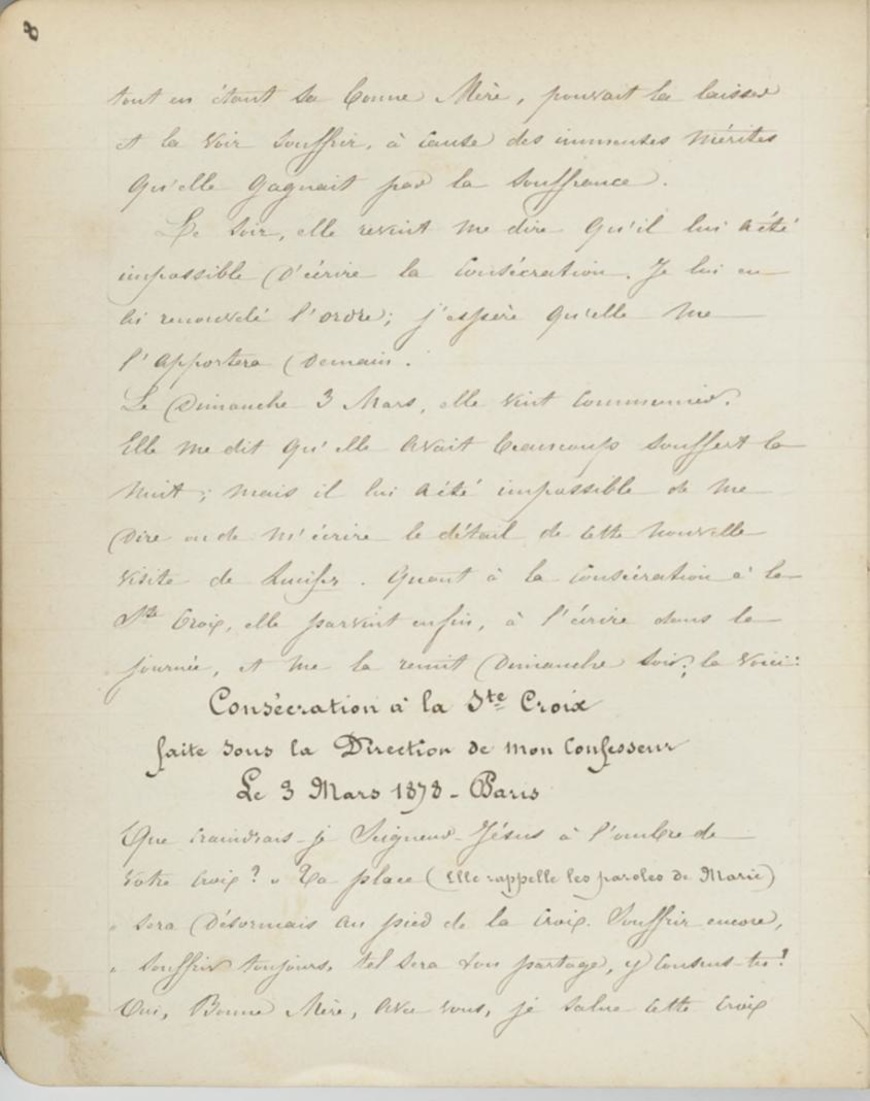 8
tout en étant sa bonne Mère, pouvait la laisser
et la voir souffrir, à cause des immenses mérites
qu'elle gagnait par la souffrance.
Le soir, elle revint me dire qu'il lui a été
impossible d'écrire la Consécration. Je lui en
ai renouvelé l'ordre; j'espère qu'elle me
l'apportera Demain.
Le Dimanche 3 Mars, elle vint communier.
Elle me dit qu'elle avait beaucoup souffert la
nuit; mais il lui a été impossible de me
Dire ou de m'écrire le détail de cette nouvelle
visite de Lucifer. Quant à la Consécration à la
Ste Croix, elle parvint enfin, à l'écrire dans la
journée, et me la remit Dimanche soir; la voici:
Consécration à la Ste Croix
faite sous la Direction de mon Confesseur
Le 3 Mars 1878 - Paris
Que craindrais-je Seigneur Jésus à l'ombre de
votre Croix? " Ta place (Elle rappelle les paroles de Marie)
" sera Désormais au pied de la Croix. Souffrir encore,
" souffrir toujours, tel sera ton partage, y consens-tu?
Oui, Bonne Mère, avec vous, je salue cette Croix